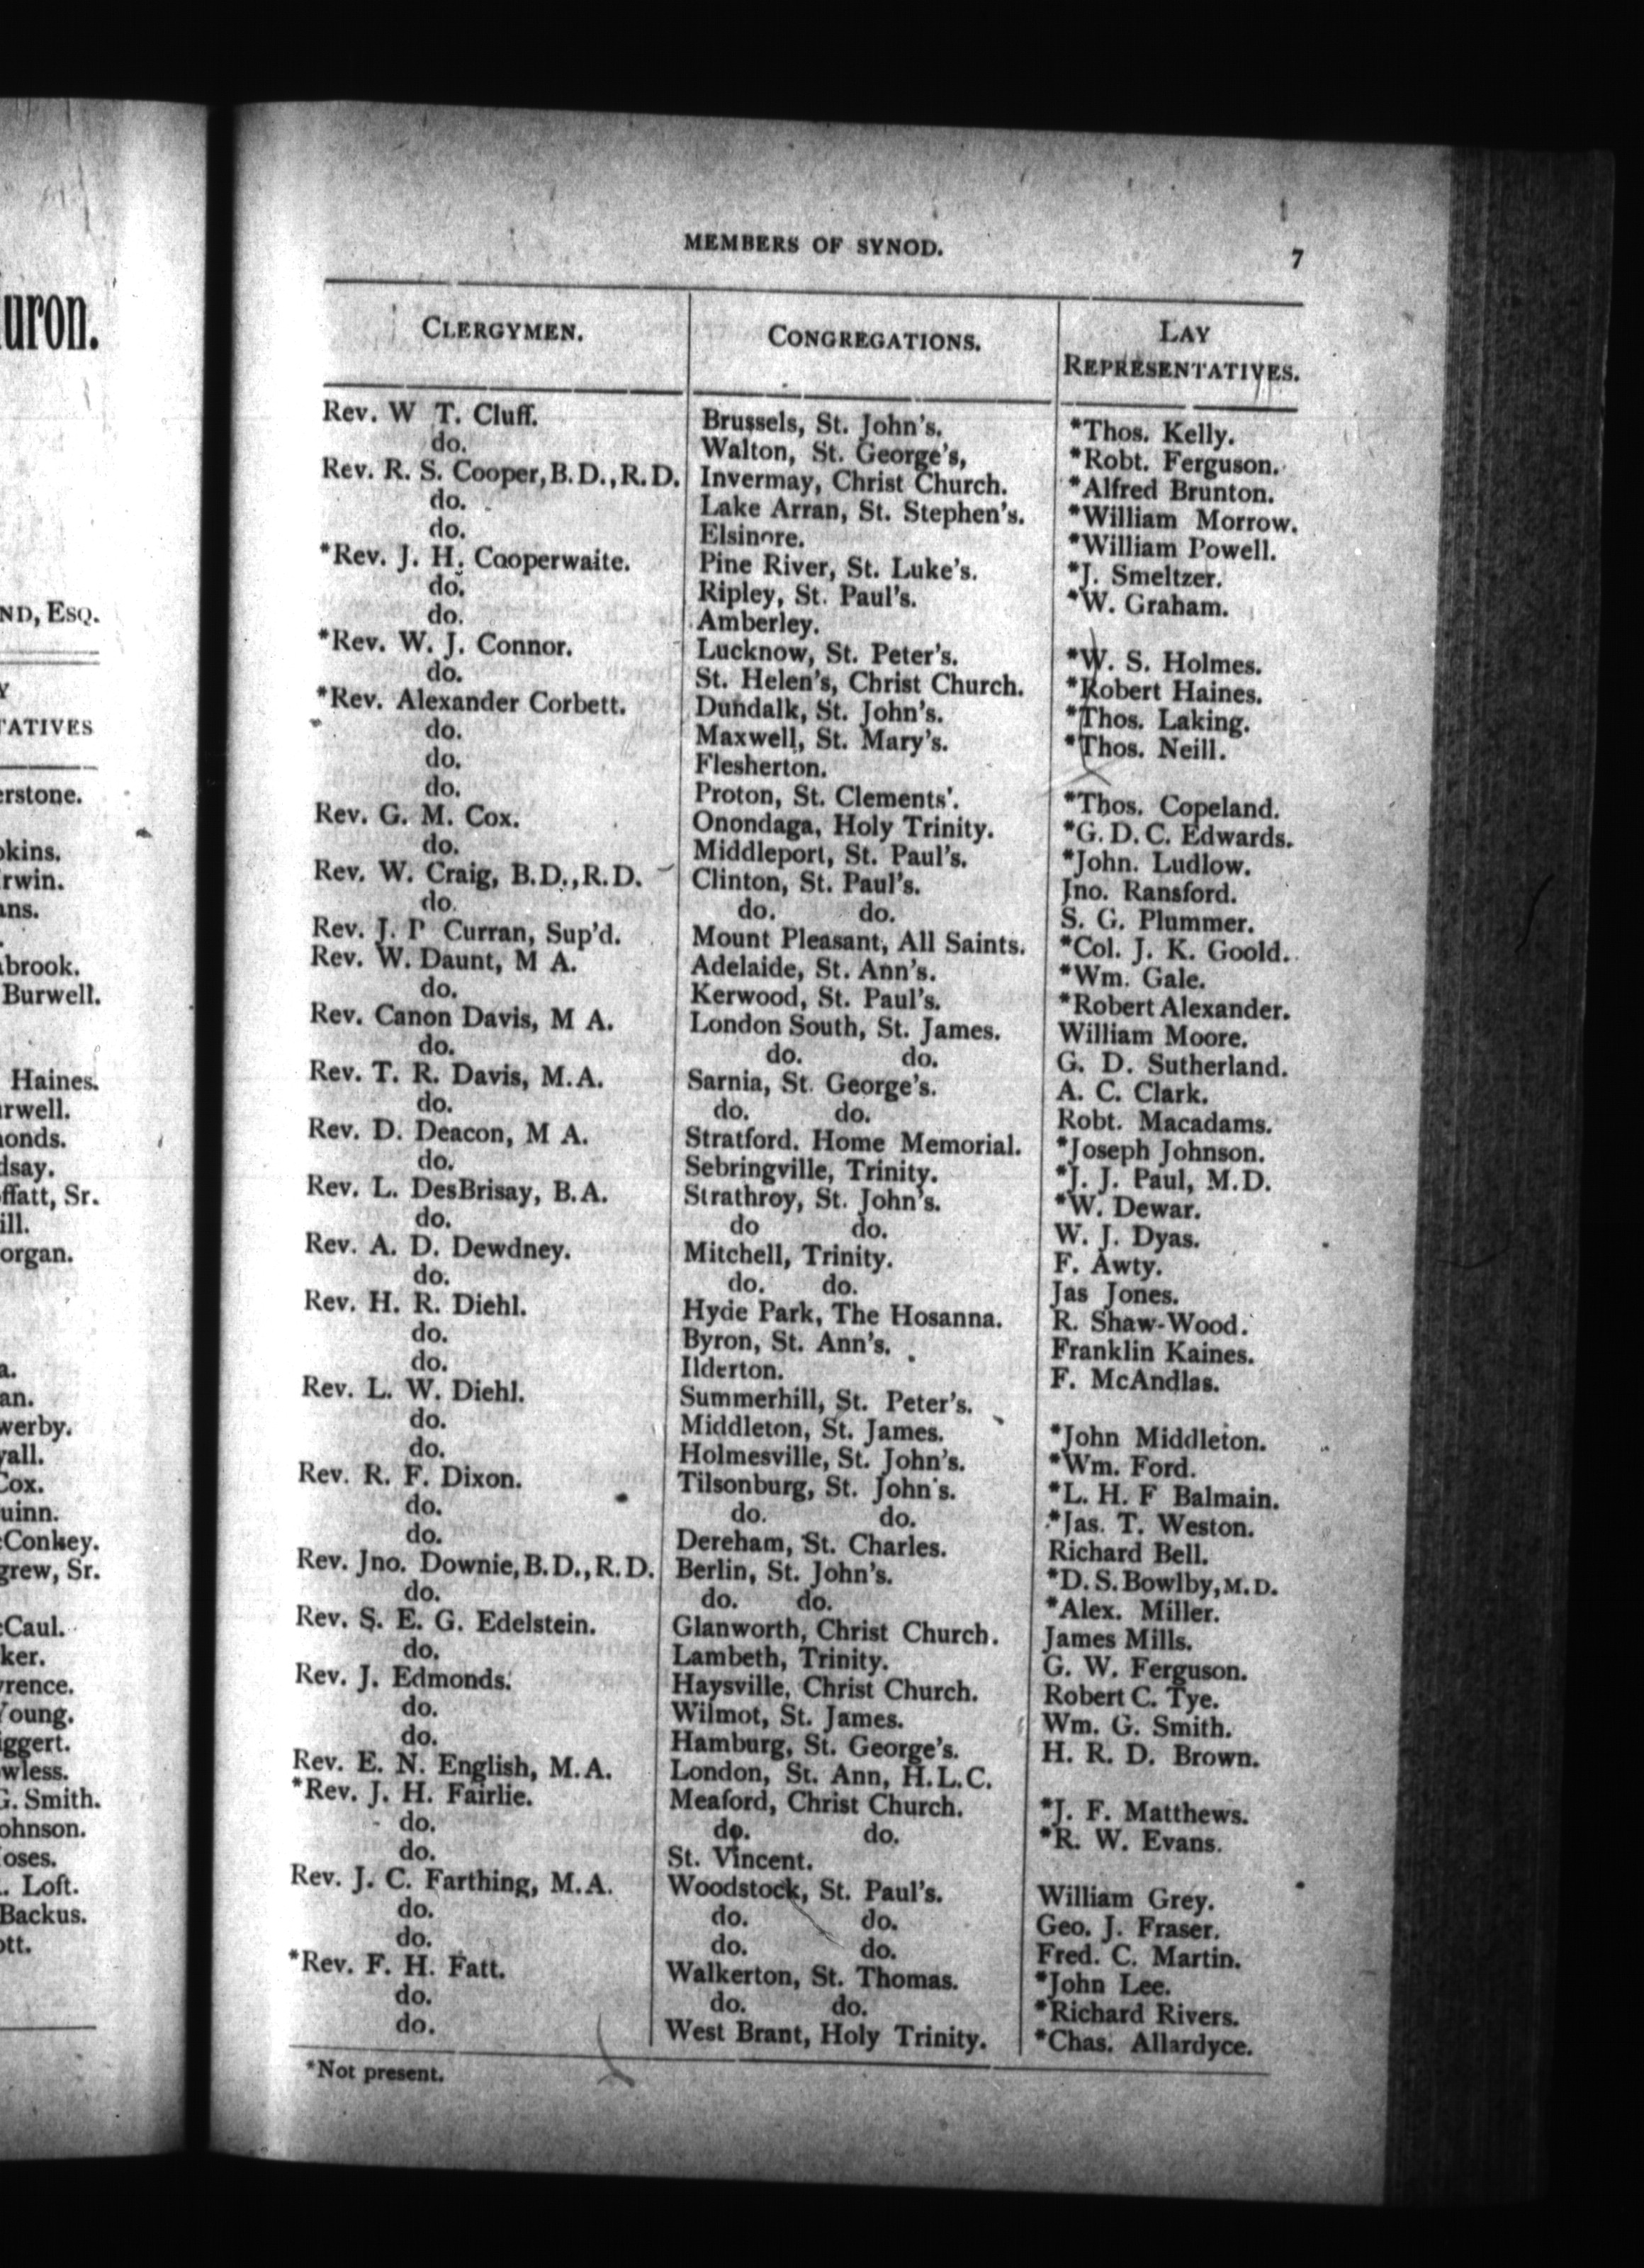 uron.
ND, ESQ.
Y
TATIVES
erstone.
okins.
rwin.
ans.
abrook.
Burwell.
Haines.
arwell.
nonds.
dsay.
ffatt, Sr.
ill.
organ.
a.
an.
werby.
yall.
Cox.
uinn.
cConkey.
grew, Sr.
cCaul.
ker.
vrence.
Young.
iggert.
wless.
G. Smith.
ohnson.
loses.
. Loft.
Backus.
ott.
MEMBERS OF SYNOD. 7
CLERGYMEN. CONGREGATIONS. LAY
REPRESENTATIVES.
Rev. W T. Cluff. Brussels, St. John's. *Thos. Kelly.
do. Walton, St. George's, *Robt. Ferguson.
Rev. R. S. Cooper, B.D., R.D. Invermay, Christ Church. *Alfred Brunton.
do. Lake Arran, St. Stephen's. *William Morrow.
do. Elsinore. *William Powell.
*Rev. J. H. Cooperwaite. Pine River, St. Luke's. *J. Smeltzer.
do. Ripley, St. Paul's. *W. Graham.
do. Amberley.
*Rev. W. J. Connor. Lucknow, St. Peter's. *W. S. Holmes.
do. St. Helen's, Christ Church. *Robert Haines.
*Rev. Alexander Corbett. Dundalk, St. John's. *Thos. Laking.
do. Maxwell, St. Mary's. *Thos. Neill.
do. Flesherton.
do. Proton, St. Clements'. *Thos. Copeland.
Rev. G. M. Cox. Onondaga, Holy Trinity. *G. D. C. Edwards.
do. Middleport, St. Paul's. *John. Ludlow.
Rev. W. Craig, B.D., R.D. Clinton, St. Paul's. Jno. Ransford.
do. do. do. S. G. Plummer.
Rev. J. P Curran, Sup'd. Mount Pleasant, All Saints. *Col. J. K. Goold.
Rev. W. Daunt, M A. Adelaide, St. Ann's. *Wm. Gale.
do. Kerwood, St. Paul's. *Robert Alexander.
Rev. Canon Davis, M A. London South, St. James. William Moore.
do. do. do. G. D. Sutherland.
Rev. T. R. Davis, M.A. Sarnia, St. George's. A. C. Clark.
do. do. do. Robt. Macadams.
Rev. D. Deacon, M A. Stratford. Home Memorial. *Joseph Johnson.
do. Sebringville, Trinity. *J. J. Paul, M.D.
Rev. L. DesBrisay, B.A. Strathroy, St. John's. *W. Dewar.
do. do do. W. J. Dyas.
Rev. A. D. Dewdney. Mitchell, Trinity. F. Awty.
do. do. do. Jas Jones.
Rev. H. R. Diehl. Hyde Park, The Hosanna. R. Shaw-Wood.
do. Byron, St. Ann's. Franklin Kaines.
do. Ilderton. F. McAndlas.
Rev. L. W. Diehl. Summerhill, St. Peter's.
do. Middleton, St. James. *John Middleton.
do. Holmesville, St. John's. *Wm. Ford.
Rev. R. F. Dixon. Tilsonburg, St. John's. *L. H. F Balmain.
do. do. do. *Jas. T. Weston.
do. Dereham, St. Charles. Richard Bell.
Rev. Jno. Downie, B.D., R.D. Berlin, St. John's. *D. S. Bowlby, M.D.
do. do. do. *Alex. Miller.
Rev. S. E. G. Edelstein. Glanworth, Christ Church. James Mills.
do. Lambeth, Trinity. G. W. Ferguson.
Rev. J. Edmonds. Haysville, Christ Church. Robert C. Tye.
do. Wilmot, St. James. Wm. G. Smith.
do. Hamburg, St. George's. H. R. D. Brown.
Rev. E. N. English, M.A. London, St. Ann, H.L.C.
*Rev. J. H. Fairlie. Meaford, Christ Church. *J. F. Matthews.
do. do. do. *R. W. Evans.
do. St. Vincent.
Rev. J. C. Farthing, M.A. Woodstock, St. Paul's. William Grey.
do. do. do. Geo. J. Fraser.
do. do. do. Fred. C. Martin.
*Rev. F. H. Fatt. Walkerton, St. Thomas. *John Lee.
do. do. do. *Richard Rivers.
do. West Brant, Holy Trinity. *Chas. Allardyce.
*Not present.